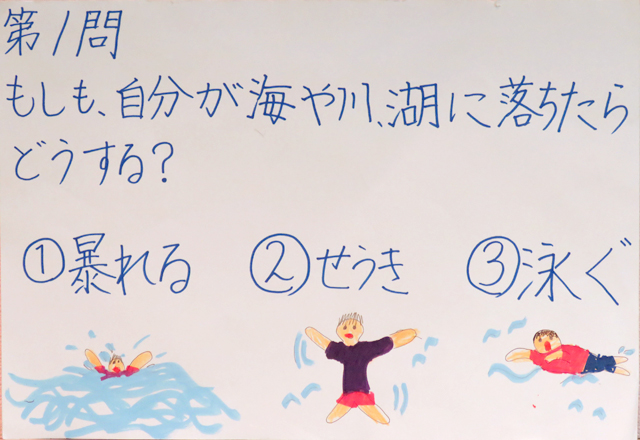 第1問
もしも、自分が海や川、湖に落ちたら
どうする?
①暴れる ②せうき ③泳ぐ